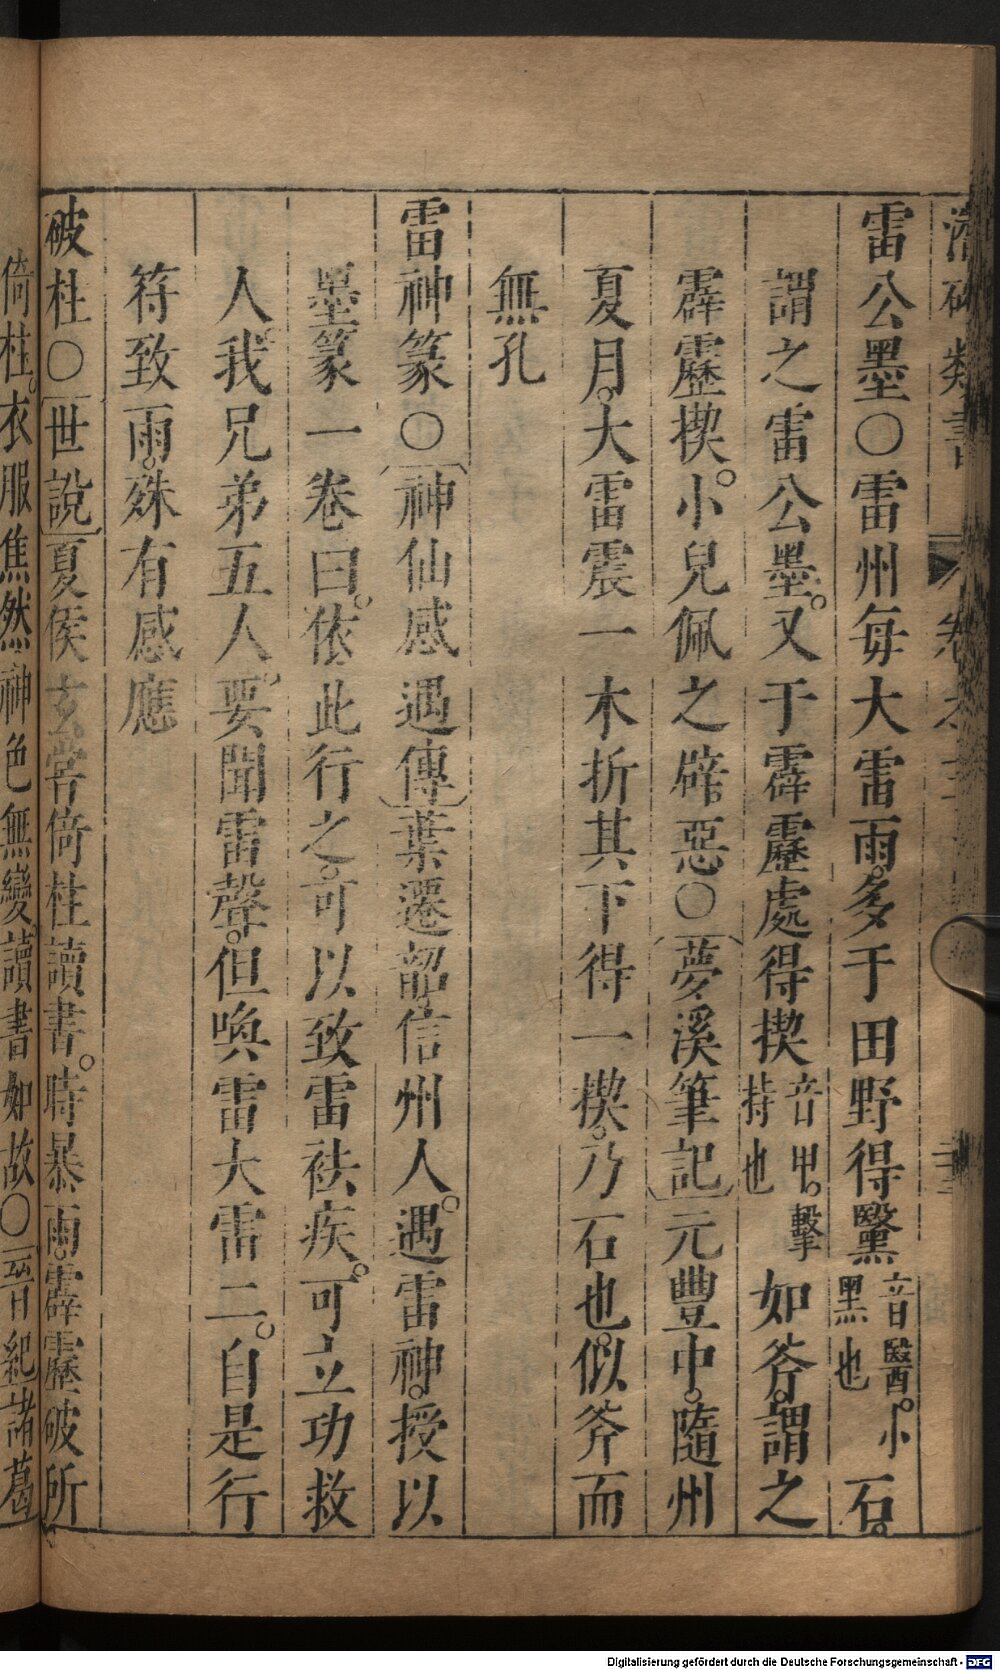 潛確類書 卷之
雷公墨○雷州每大雷雨。多于田野得黳音醫。小黑也石。
謂之雷公墨。又于霹靂處得楔音甲。擊持也如斧。謂之
霹靂楔。小兒佩之辟惡○夢溪筆記元豐中。隨州
夏月。大雷震一木折其下得一楔。乃石也。似斧而
無孔
雷神篆○神仙感遇傳葉遷韶。信州人。遇雷神。授以
墨篆一卷曰。依此行之。可以致雷祛疾。可立功救
人。我兄弟五人。要聞雷聲。但喚雷大雷二。自是行
符致雨。殊有感應
破柱○世說夏侯玄常倚柱讀書。時暴雨。霹靂破所
倚柱。衣服焦然。神色無變。讀書如故○晉紀諸葛
Digitalisierung gefördert durch die Deutsche Forschungsgemeinschaft - DFG